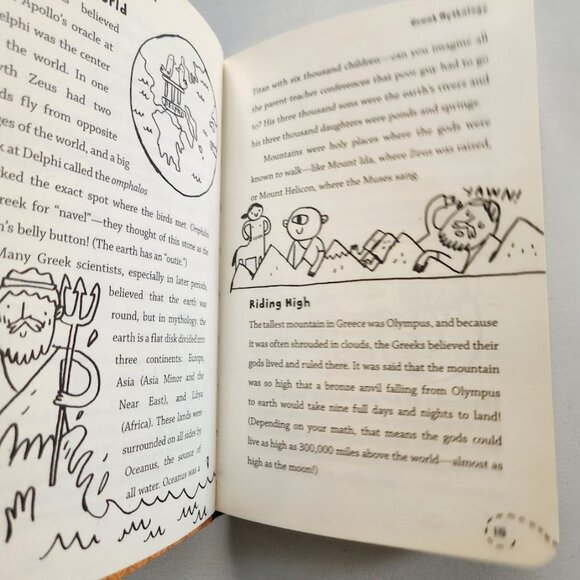 orld
believed
Apollo's oracle at
elphi was the center
the world. In one
yth Zeus had two
ds fly from opposite
ges of the world, and a big
k at Delphi called the omphalos
ked the exact spot where the birds met. Omphalos
reek for "navel"—they thought of this stone as the
n's belly button! (The earth has an "outie.")
Many Greek scientists, especially in later periods,
believed that the earth was
round, but in mythology, the
earth is a flat disk divided into
three continents: Europe,
Asia (Asia Minor and the
Near East), and Libya
(Africa). These lands were
surrounded on all sides by
Oceanus, the source of
all water. Oceanus was a
Greek Mythology
Titan with six thousand children—can you imagine all
the parent-teacher conferences that poor guy had to go
to? His three thousand sons were the earth's rivers and
his three thousand daughters were ponds and springs.
Mountains were holy places where the gods were
known to walk—like Mount Ida, where Zeus was raised,
or Mount Helicon, where the Muses sang.
YAWN!
Riding High
The tallest mountain in Greece was Olympus, and because
it was often shrouded in clouds, the Greeks believed their
gods lived and ruled there. It was said that the mountain
was so high that a bronze anvil falling from Olympus
to earth would take nine full days and nights to land!
(Depending on your math, that means the gods could
live as high as 300,000 miles above the world—almost as
high as the moon!)